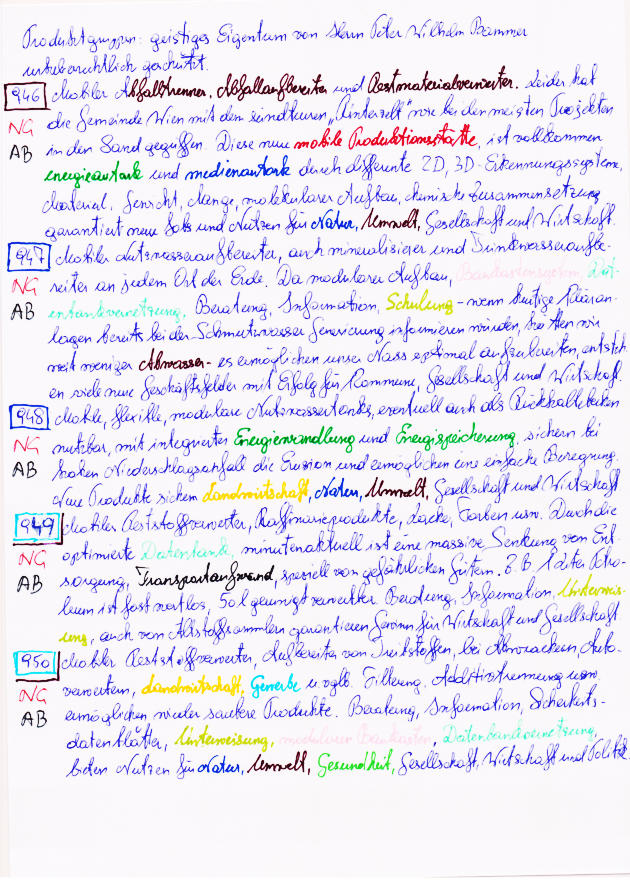 Produktgruppen: geistiges Eigentum von Herrn Peter Wilhelm Brammer
urheberrechtlich geschützt.
946 Mobiler Abfalltrenner, Abfallaufbereiter und Restmaterialverwerter. Leider hat
NG die Gemeinde Wien mit dem sündteuren „Rinterzelt" wie bei den meisten Projekten
AB in den Sand gegriffen. Diese neue mobile Produktionsstätte, ist vollkommen
energieautark und medienautark durch differente 2D, 3D-Erkennungssysteme,
Material, Gewicht, Menge, molekularer Aufbau, chemische Zusammensetzung
garantiert neue Jobs und Nutzen für Natur, Umwelt, Gesellschaft und Wirtschaft.
947 Mobiler Nutzwasseraufbereiter, auch mineralisiger und Trinkwasseraufbe-
NG reiter an jedem Ort der Erde. Da modularer Aufbau, Baukastensystem, Dat-
AB enbankvernetzung, Beratung, Information, Schulung - wenn heutige Kläran-
lagen bereits bei der Schmutzwasser Generierung informieren würden, hätten wir
weit weniger Abwasser - es ermöglichen unser Nass optimal aufzubereiten, entsteh-
en viele neue Geschäftsfelder mit Erfolg für Kommune, Gesellschaft und Wirtschaft.
948 Mobile, flexible, modulare Nutzwassertanks, eventuell auch als Rückhaltebecken
NG nutzbar, mit integrierter Energiewandlung und Energiespeicherung, sichern bei
AB hohen Niederschlagsanfall die Erosion und ermöglichen eine einfache Beregnung.
Neue Produkte sichern Landwirtschaft, Natur, Umwelt, Gesellschaft und Wirtschaft
949 Mobiler Reststoffverwerter, Raffinerieprodukte, Lacke, Farben usw. Durch die
NG optimierte Datenbank, minutenaktuell ist eine massive Senkung von Ent-
AB sorgung, Transportaufwand, speziell von gefährlichen Gütern. Z B 1 Liter Petro-
leum ist fast wertlos, 50 l gereinigt verwertbar Beratung, Information, Unterweis-
ung, auch von Altstoffsammlern garantieren Gewinn für Wirtschaft und Gesellschaft
950 Mobiler Reststoffverwerter, Aufbereiter von Treibstoffen, bei Abwracken, Auto-
NG verwertern, Landwirtschaft, Gewerbe u vglb. Filterung, Additivtrennung usw.
AB ermöglichen wieder saubere Produkte. Beratung, Information, Sicherheits-
datenblätter, Unterweisung, modularer Baukasten, Datenbankvernetzung,
bieten Nutzen für Natur, Umwelt, Gesundheit, Gesellschaft, Wirtschaft und Politik.